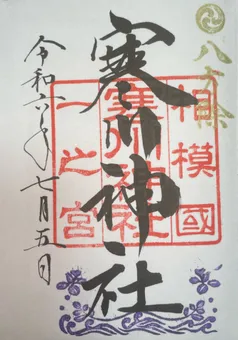 八方除
寒川神社
相模國
寒川神社
一之宮
令和六年七月五日